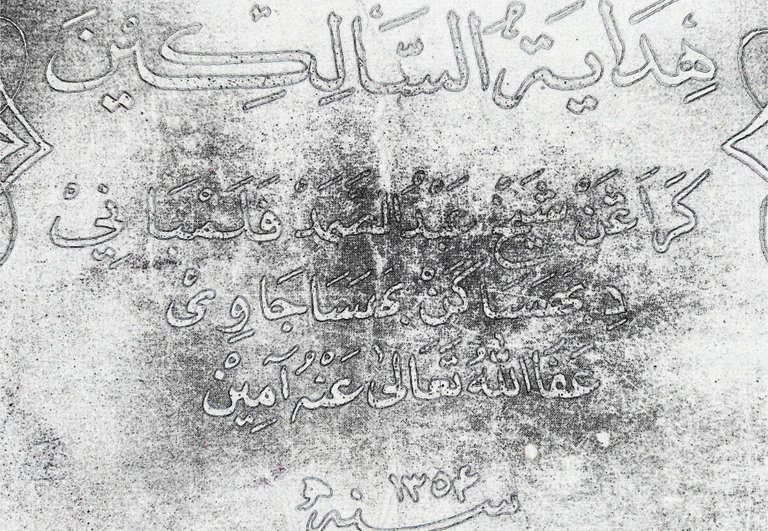 هِدَايَةُ السَّالِكِيْنَ
كَرَاڠَنْ شَيْخْ عَبْدُ الصَّمَدْ فَلَمْبَانِيْ
دِبَهَسَاكَنْ بَهَسَا جَاوِىْ
عَفَا اللّٰهُ تَعَالٰى عَنْهُ آمِيْنْ
سنة ١٣٥٤